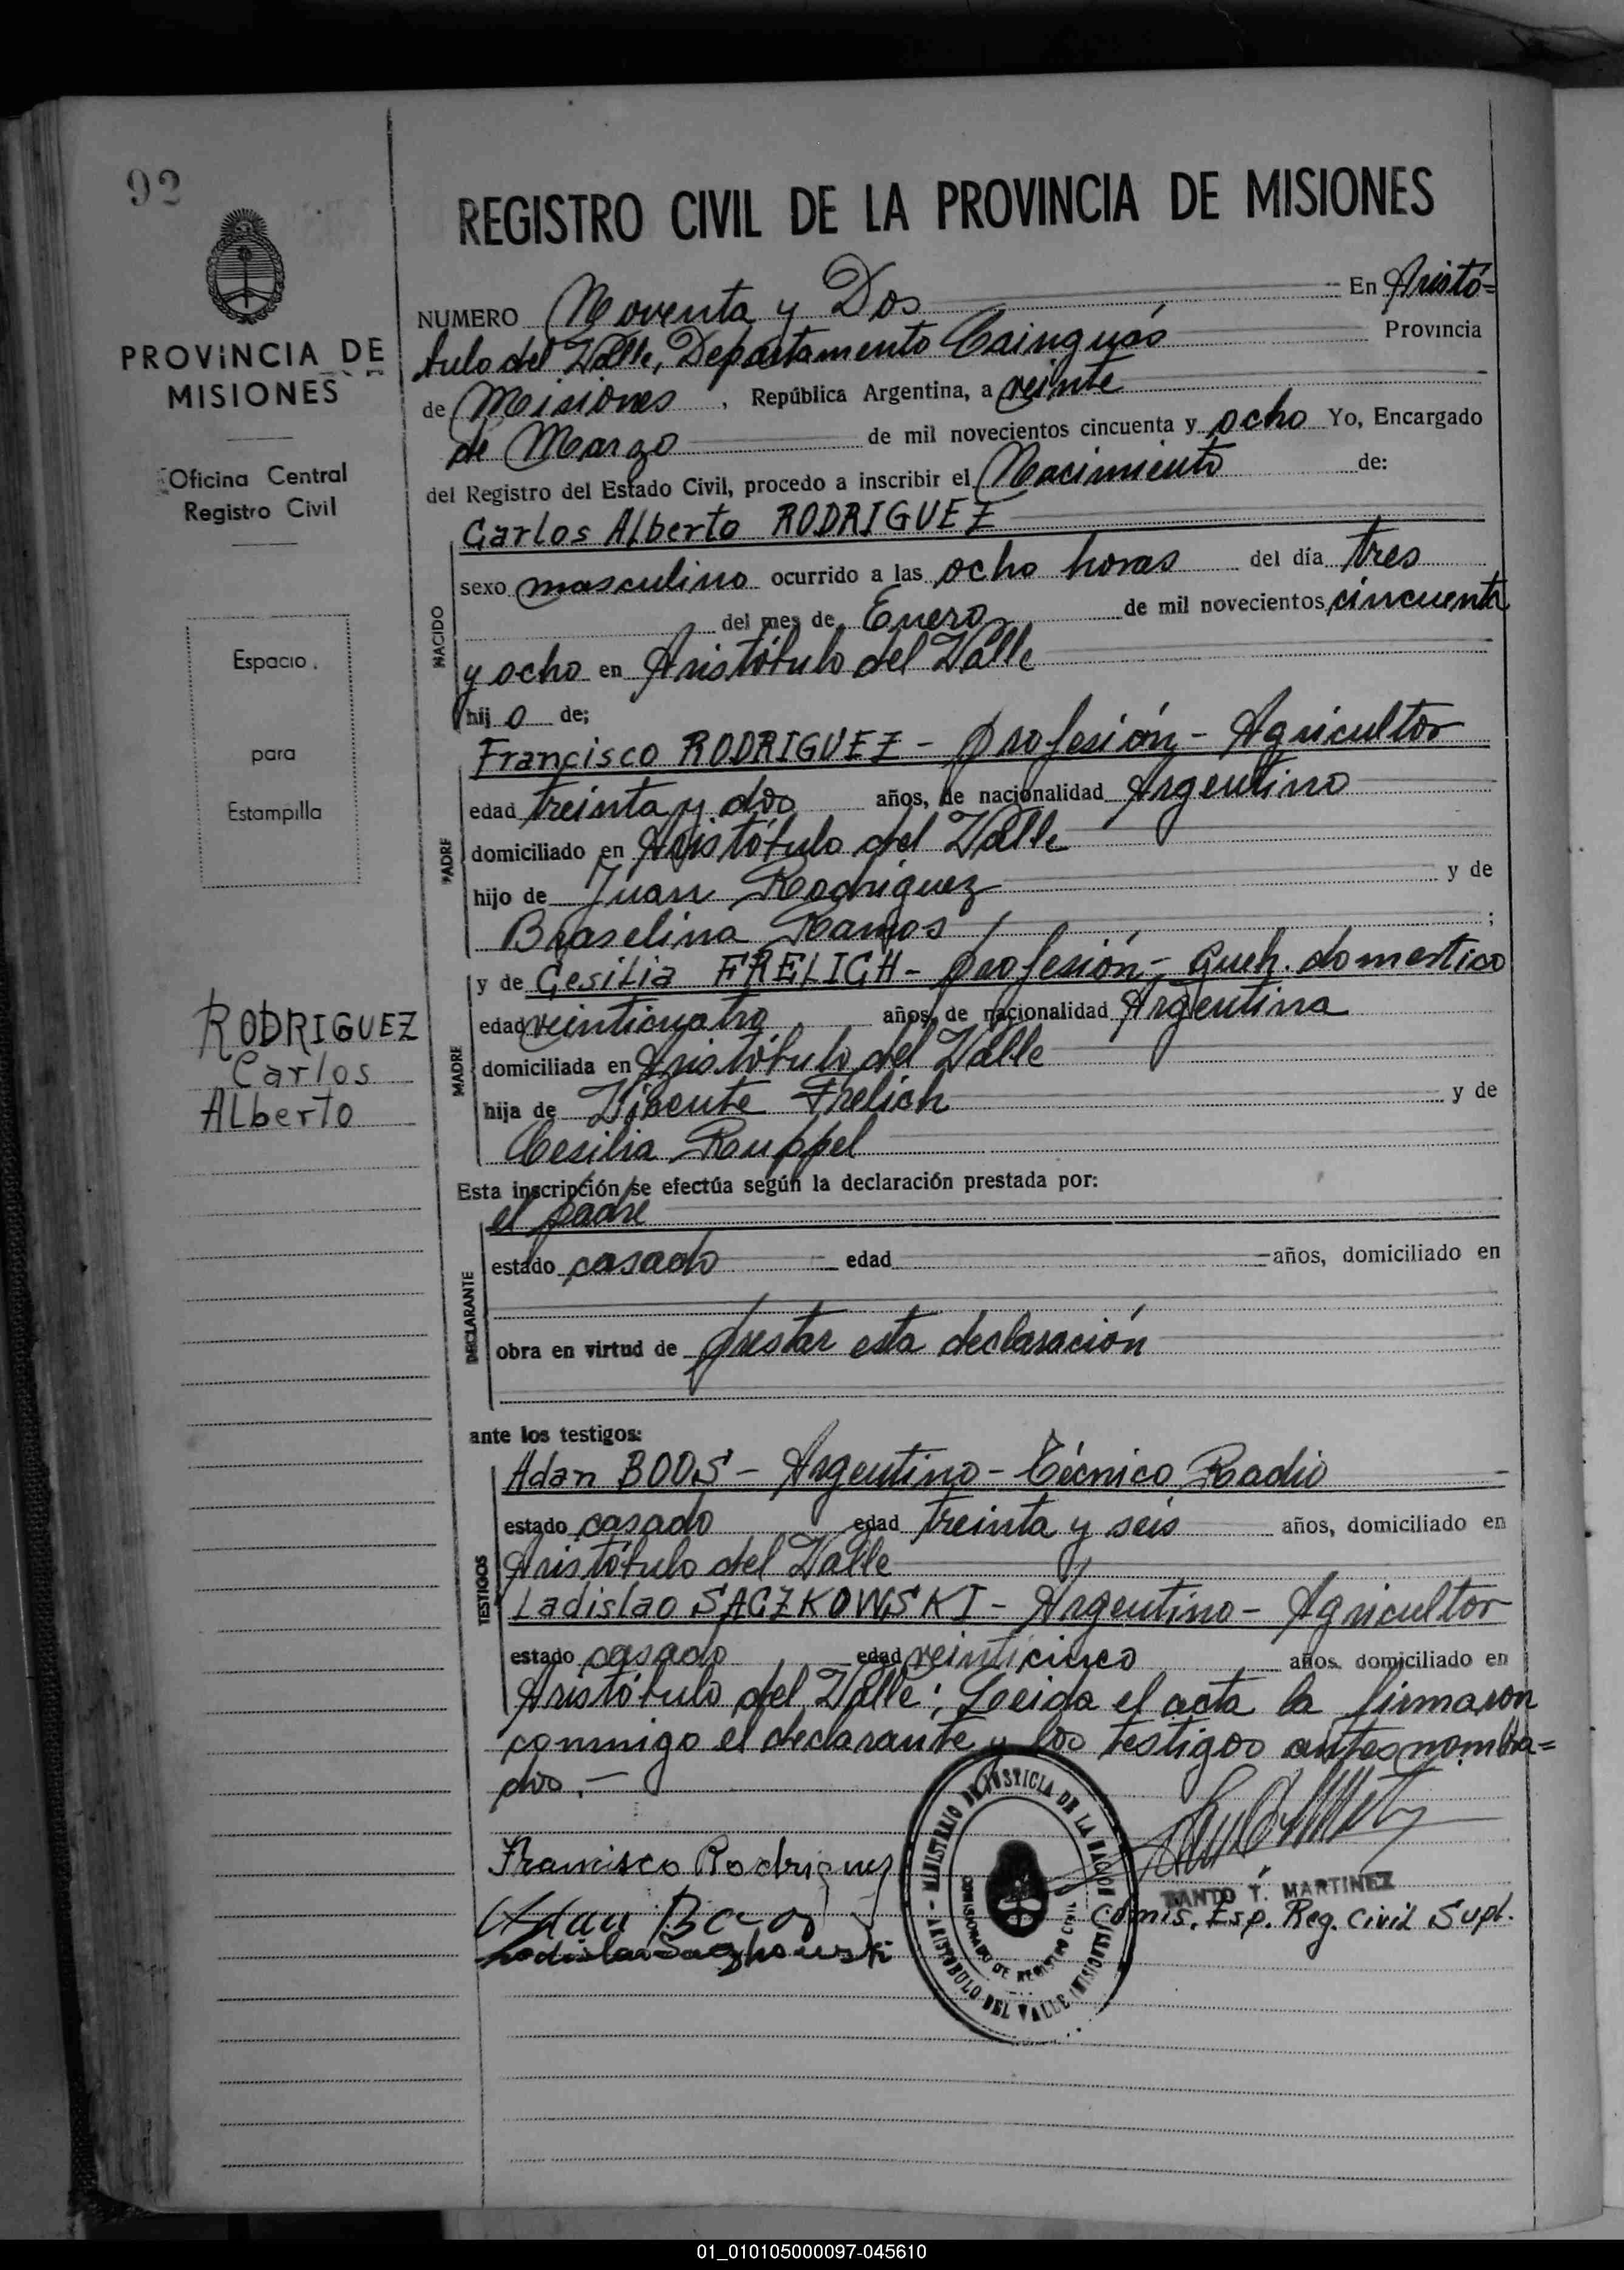 92
PROVINCIA DE
MISIONES
Oficina Central
Registro Civil
Espacio
para
Estampilla
RODRIGUEZ
Carlos
Alberto
REGISTRO CIVIL DE LA PROVINCIA DE MISIONES
NUMERO Noventa y Dos En Aristó=
bulo del Valle, Departamento Cainguás Provincia
de Misiones, República Argentina, a veinte
de Marzo de mil novecientos cincuenta y ocho Yo, Encargado
del Registro del Estado Civil, procedo a inscribir el Nacimiento de:
Carlos Alberto RODRIGUEZ
NACIDO
sexo masculino ocurrido a las ocho horas del día tres
del mes de Enero de mil novecientos cincuenta
y ocho en Aristóbulo del Valle
hijo de;
Francisco RODRIGUEZ - profesión - Agricultor
PADRE
edad treinta y dos años, de nacionalidad Argentino
domiciliado en Aristóbulo del Valle
hijo de Juan Rodriguez y de
Braselina Ramos ;
y de Cesilia FRELICH - profesión - Queh. domestico
MADRE
edad veinticuatro años, de nacionalidad Argentina
domiciliada en Aristóbulo del Valle
hija de Vicente Frelich y de
Cesilia Ruppel
Esta inscripción se efectúa según la declaración prestada por:
el padre
DECLARANTE
estado casado edad años, domiciliado en
obra en virtud de prestar esta declaración
ante los testigos:
Adan BOOS - Argentino - Técnico Radio
TESTIGOS
estado casado edad treinta y seis años, domiciliado en
Aristóbulo del Valle
Ladislao SACZKOWSKI - Argentino - Agricultor
estado casado edad veinticinco años, domiciliado en
Aristóbulo del Valle; Leida el acta la firmaron
conmigo el declarante y los testigos antes nombra=
dos.-
Francisco Rodriguez
Adan Boos
Ladislao Saczkowski
MINISTERIO DE JUSTICIA DE LA NACION
COMISIONADO DE REGISTRO CIVIL
ARISTOBULO DEL VALLE (MISIONES)
SANTO T. MARTINEZ
Comis. Esp. Reg. Civil Supl.
01_010105000097-045610